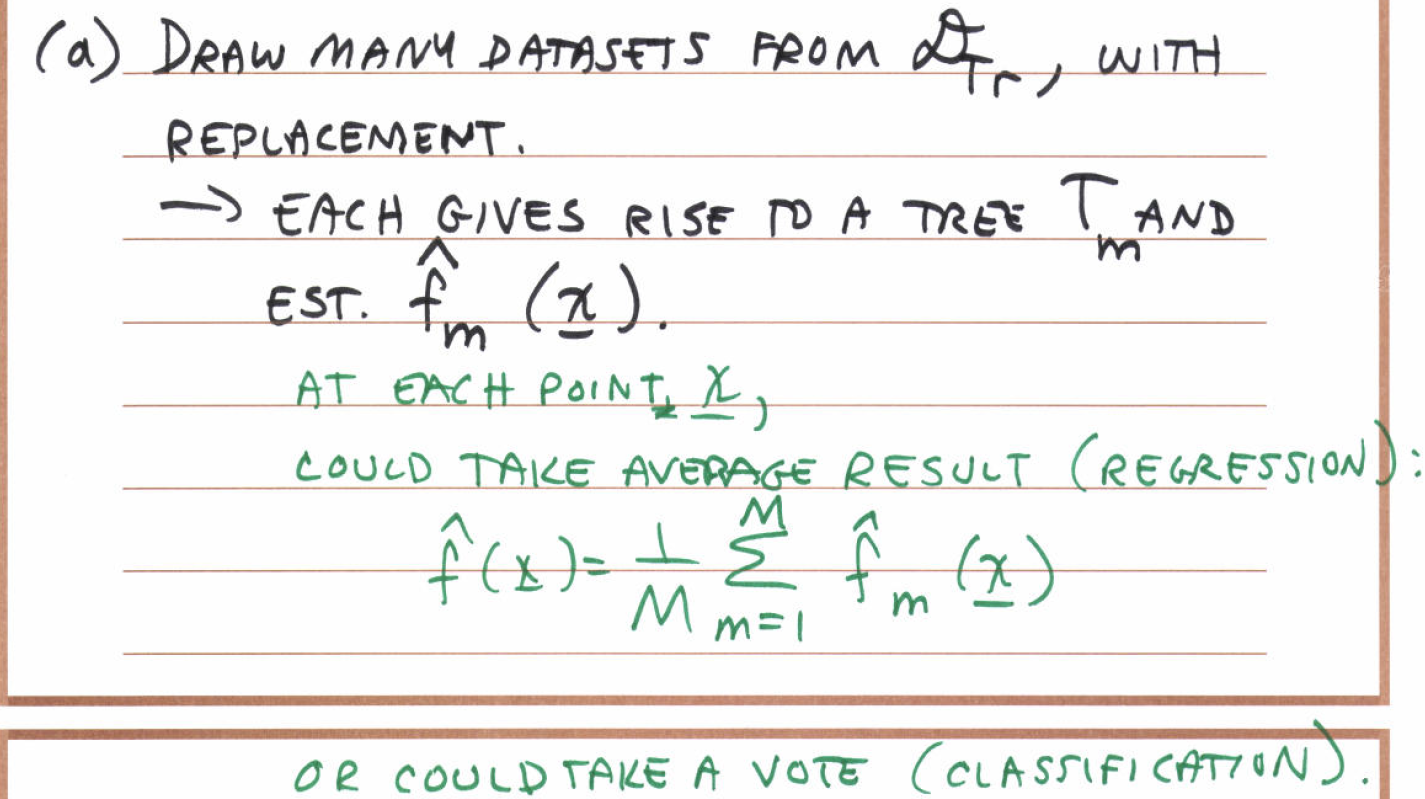 (a) DRAW MANY DATASETS FROM 𝒟_Tr, WITH
REPLACEMENT.
→ EACH GIVES RISE TO A TREE T_m AND
EST. f̂_m (x̲).
AT EACH POINT, x̲,
COULD TAKE AVERAGE RESULT (REGRESSION):
f̂(x̲) = 1/M ∑_{m=1}^{M} f̂_m (x̲)
OR COULD TAKE A VOTE (CLASSIFICATION).